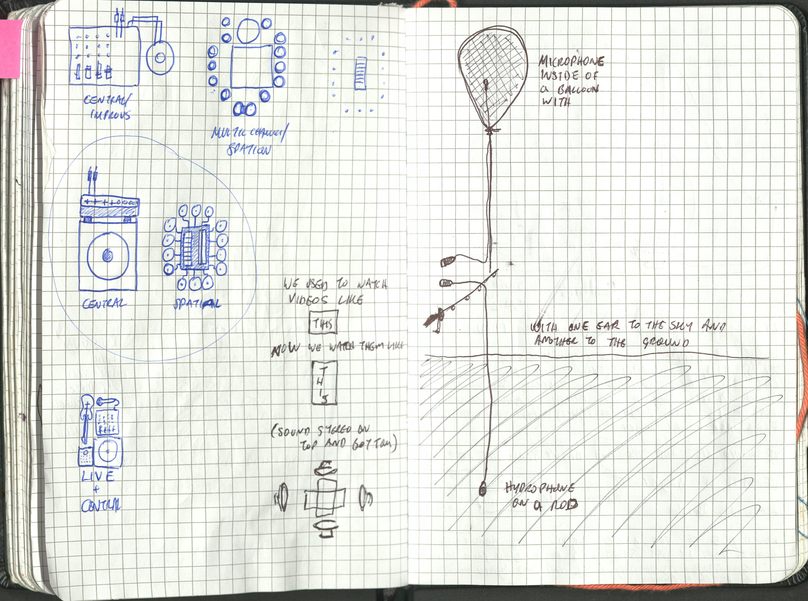 CENTRAL/
IMPROVS
MULTICHANNEL/
SPATION
CENTRAL
SPATIONAL
WE USED TO WATCH
VIDEOS LIKE
THIS
NOW WE WATCH THEM LIKE
T
H
I
S
(SOUND STEREO ON
TOP AND BOTTOM)
LIVE
+
CENTRAL
MICROPHONE
INSIDE OF
A BALLOON
WITH
WITH ONE EAR TO THE SKY AND
ANOTHER TO THE GROUND
HYDROPHONE
ON A ROD